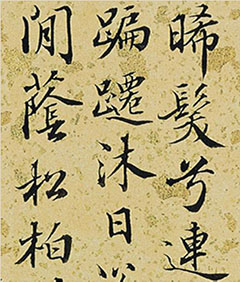 晞髮兮連
蹁躚沐日
閒蔭松柏